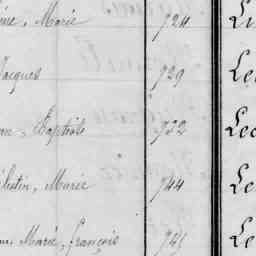 ine, Marie 724 Lu
Jacques 729 Le
an, Baptiste 732 Lec
élestin, Marie 744 Le
Marie, françois 745 Le